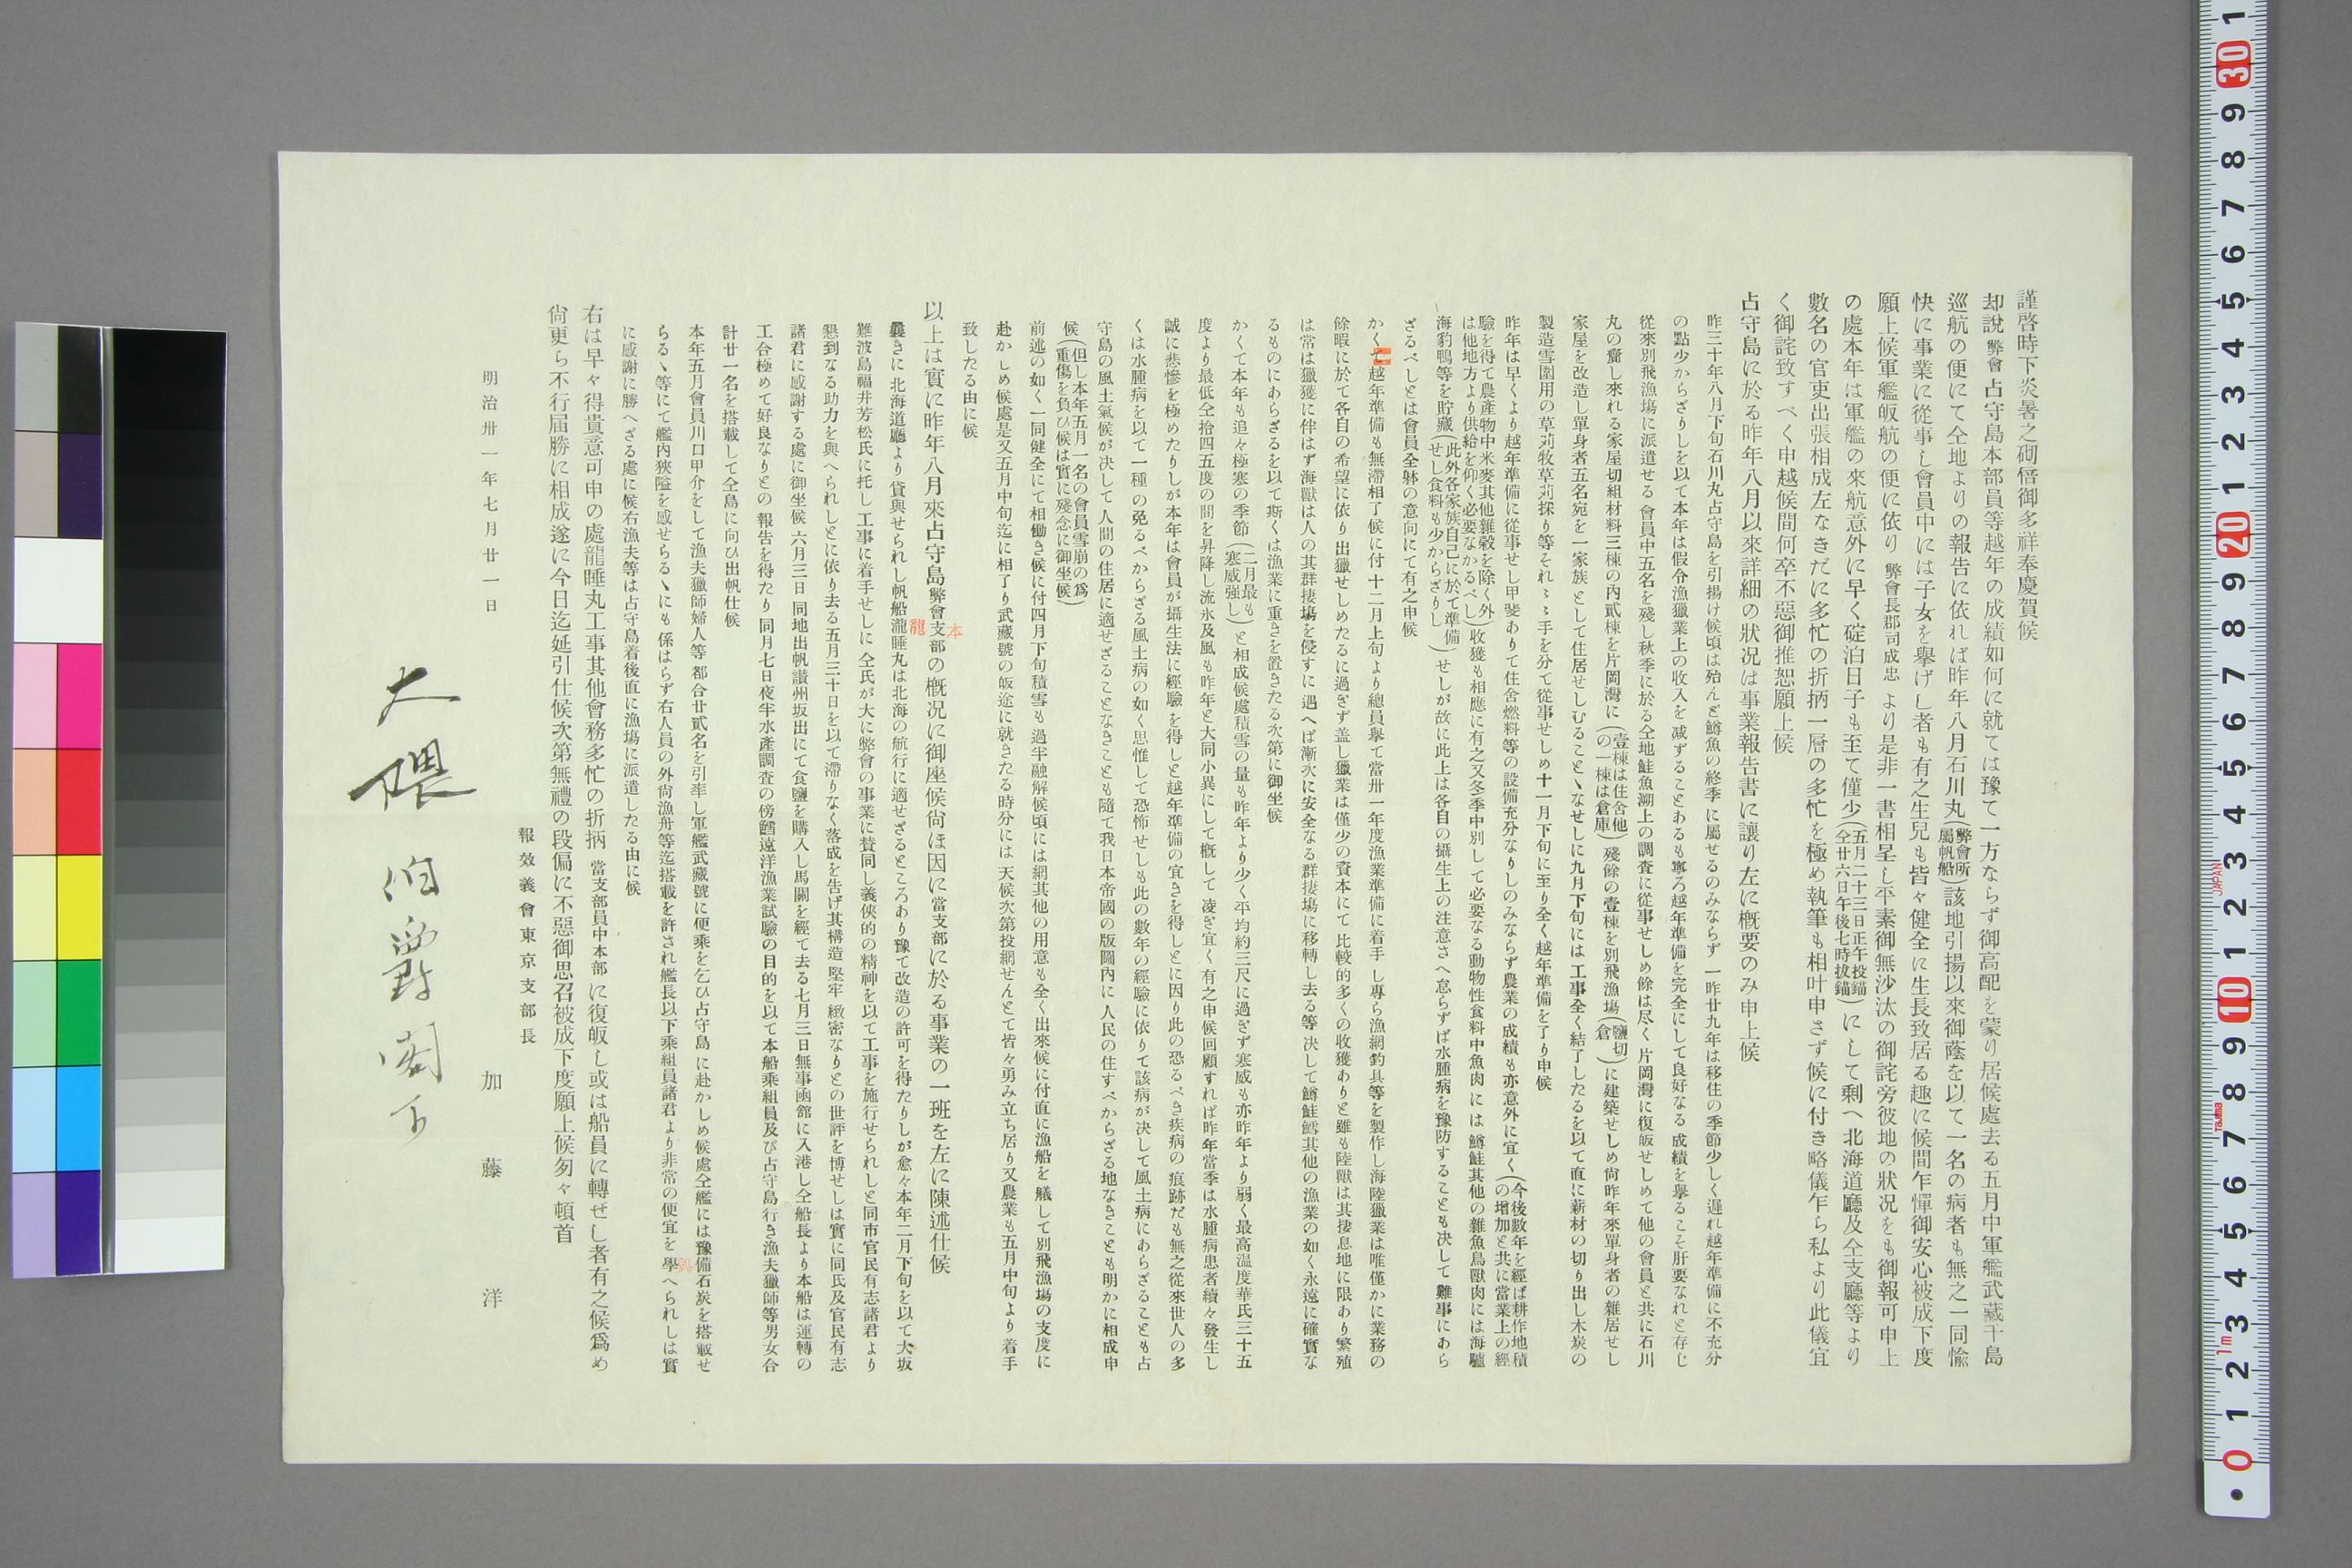 謹啓時下炎暑之砌倍御多祥奉慶賀候
却說弊會占守島本部員等越年の成績如何に就ては豫て一方ならず御高配を蒙り居候處去る五月中軍艦武藏千島
巡航の便にて仝地よりの報告に依れば昨年八月石川丸(弊會所屬帆船)該地引揚以來御蔭を以て一名の病者も無之一同愉
快に事業に從事し會員中には子女を擧げし者も有之生兒も皆々健全に生長致居る趣に候間乍憚御安心被成下度
願上候軍艦皈航の便に依り弊會長郡司成忠より是非一書相呈し平素御無沙汰の御詫旁彼地の狀況をも御報可申上
の處本年は軍艦の來航意外に早く碇泊日子も至て僅少(五月二十三日正午投錨仝廿六日午後七時拔錨)にして剩へ北海道廳及仝支廳等より
數名の官吏出張相成左なきだに多忙の折柄一層の多忙を極め執筆も相叶申さず候に付き略儀乍ら私より此儀宜
く御詫致すべく申越候間何卒不惡御推恕願上候
占守島に於る昨年八月以來詳細の狀況は事業報告書に讓り左に概要のみ申上候
昨三十年八月下旬石川丸占守島を引揚け候頃は殆んど鱒魚の終季に屬せるのみならず一昨廿九年は移住の季節少しく遲れ越年準備に不充分
の點少からざりしを以て本年は假令漁獵業上の收入を減ずることあるも寧ろ越年準備を完全にして良好なる成績を擧るこそ肝要なれと存じ
從來別飛漁塲に派遣せる會員中五名を殘し秋季に於る仝地鮭魚溯上の調査に從事せしめ餘は尽く片岡灣に復皈せしめて他の會員と共に石川
丸の齎し來れる家屋切組材料三棟の內貳棟を片岡灣に(壹棟は住舍他の一棟は倉庫)殘餘の壹棟を別飛漁塲(鹽切倉)に建築せしめ尙昨年來單身者の雜居せし
家屋を改造し單身者五名宛を一家族として住居せしむることゝなせしに九月下旬には工事全く結了したるを以て直に薪材の切り出し木炭の
製造雪圍用の草苅牧草苅採り等それ〲手を分て從事せしめ十一月下旬に至り全く越年準備を了り申候
昨年は早くより越年準備に從事せし甲斐ありて住舍燃料等の設備充分なりしのみならず農業の成績も亦意外に宜く(今後數年を經ば耕作地積の增加と共に當業上の經
驗を得て農產物中米麥其他雜穀を除く外は他地方より供給を仰く必要なかるべし)收獲も相應に有之又冬季中別して必要なる動物性食料中魚肉には鱒鮭其他の雜魚鳥獸肉には海驢
海豹鴨等を貯藏(此外各家族自己に於て準備せし食料も少からざりし)せしが故に此上は各自の攝生上の注意さへ怠らずば水腫病を豫防することも決して難事にあら
ざるべしとは會員全躰の意向にて有之申候
かくて越年準備も無滯相了候に付十二月上旬より總員擧て當卅一年度漁業準備に着手し專ら漁網釣具等を製作し海陸獵業は唯僅かに業務の
餘暇に於て各自の希望に依り出獵せしめたるに過ぎず盖し獵業は僅少の資本にて比較的多くの收獲ありと雖も陸獸は其捿息地に限あり繁殖
は常は獵獲に伴はず海獸は人の其群捿塲を侵すに遇へば漸次に安全なる群捿塲に移轉し去る等決して鱒鮭鱈其他の漁業の如く永遠に確實な
るものにあらざるを以て斯くは漁業に重きを置きたる次第に御坐候
かくて本年も追々極寒の季節(二月最も寒威强し)と相成候處積雪の量も昨年より少く平均約三尺に過ぎず寒威も亦昨年より弱く最高溫度華氏三十五
度より最低仝拾四五度の間を昇降し流氷及風も昨年と大同小異にして概して凌ぎ宜く有之申候回顧すれば昨年當季は水腫病患者續々發生し
誠に悲慘を極めたりしが本年は會員が攝生法に經驗を得しと越年準備の宜きを得しとに因り此の恐るべき疾病の痕跡だも無之從來世人の多
くは水腫病を以て一種の免るべからざる風土病の如く思惟して恐怖せしも此の數年の經驗に依りて該病が決して風土病にあらざることも占
守島の風土氣候が決して人間の住居に適せざることなきことも隨て我日本帝國の版圖內に人民の住すべからざる地なきことも明かに相成申
候(但し本年五月一名の會員雪崩の爲重傷を負ひ候は實に殘念に御坐候)
前述の如く一同健全にて相働き候に付四月下旬積雪も過半融解候頃には網其他の用意も全く出來候に付直に漁船を艤して別飛漁塲の支度に
赴かしめ候處是又五月中旬迄に相了り武藏號の皈途に就きたる時分には天候次第投網せんとて皆々勇み立ち居り又農業も五月中旬より着手
致したる由に候
以上は實に昨年八月來占守島弊會支部の概況に御座候尙ほ因に當支部に於る事業の一班を左に陳述仕候
本
曩きに北海道廳より貸與せられし帆船瀧睡丸は北海の航行に適せざるところあり豫て改造の許可を得たりしが愈々本年二月下旬を以て大坂
龍
難波島福井芳松氏に托し工事に着手せしに仝氏が大に弊會の事業に賛同し義俠的の精神を以て工事を施行せられしと同市官民有志諸君より
懇到なる助力を與へられしとに依り去る五月三十日を以て滯りなく落成を告げ其構造堅牢緻密なりとの世評を博せしは實に同氏及官民有志
諸君に感謝する處に御坐候六月三日同地出帆讃州坂出にて食鹽を購入し馬關を經て去る七月三日無事函館に入港し仝船長より本船は運轉の
工合極めて好良なりとの報告を得たり同月七日夜半水產調査の傍鱈遠洋漁業試驗の目的を以て本船乘組員及び占守島行き漁夫獵師等男女合
計廿一名を搭載して仝島に向ひ出帆仕候
本年五月會員川口甲介をして漁夫獵師婦人等都合廿貳名を引率し軍艦武藏號に便乘を乞ひ占守島に赴かしめ候處仝艦には豫備石炭を搭載せ
らるゝ等にて艦內狹隘を感せらるゝにも係はらず右人員の外尙漁舟等迄搭載を許され艦長以下乘組員諸君より非常の便宜を學へられしは實
與
に感謝に勝へざる處に候右漁夫等は占守島着後直に漁塲に派遣したる由に候
右は早々得貴意可申の處龍睡丸工事其他會務多忙の折柄當支部員中本部に復皈し或は船員に轉ぜし者有之候爲め
尙更ら不行届勝に相成遂に今日迄延引仕候次第無禮の段偏に不惡御思召被成下度願上候匆々頓首
報效義會東京支部長
明治卅一年七月廿一日
加藤洋
大隈伯爵閣下